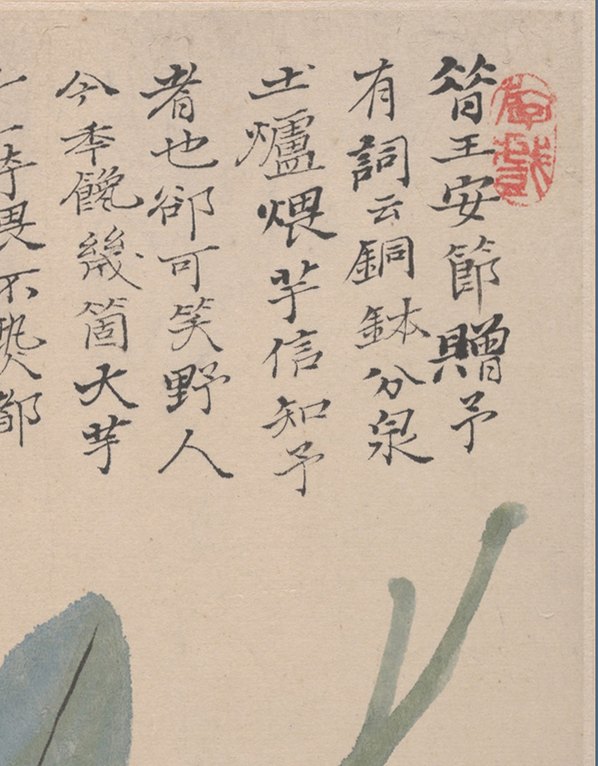 昝王安節贈予
有詞云銅鉢分泉
土爐煨芋信知予
者也卻可笑野人
今年饞幾箇大芋
畏不熟都